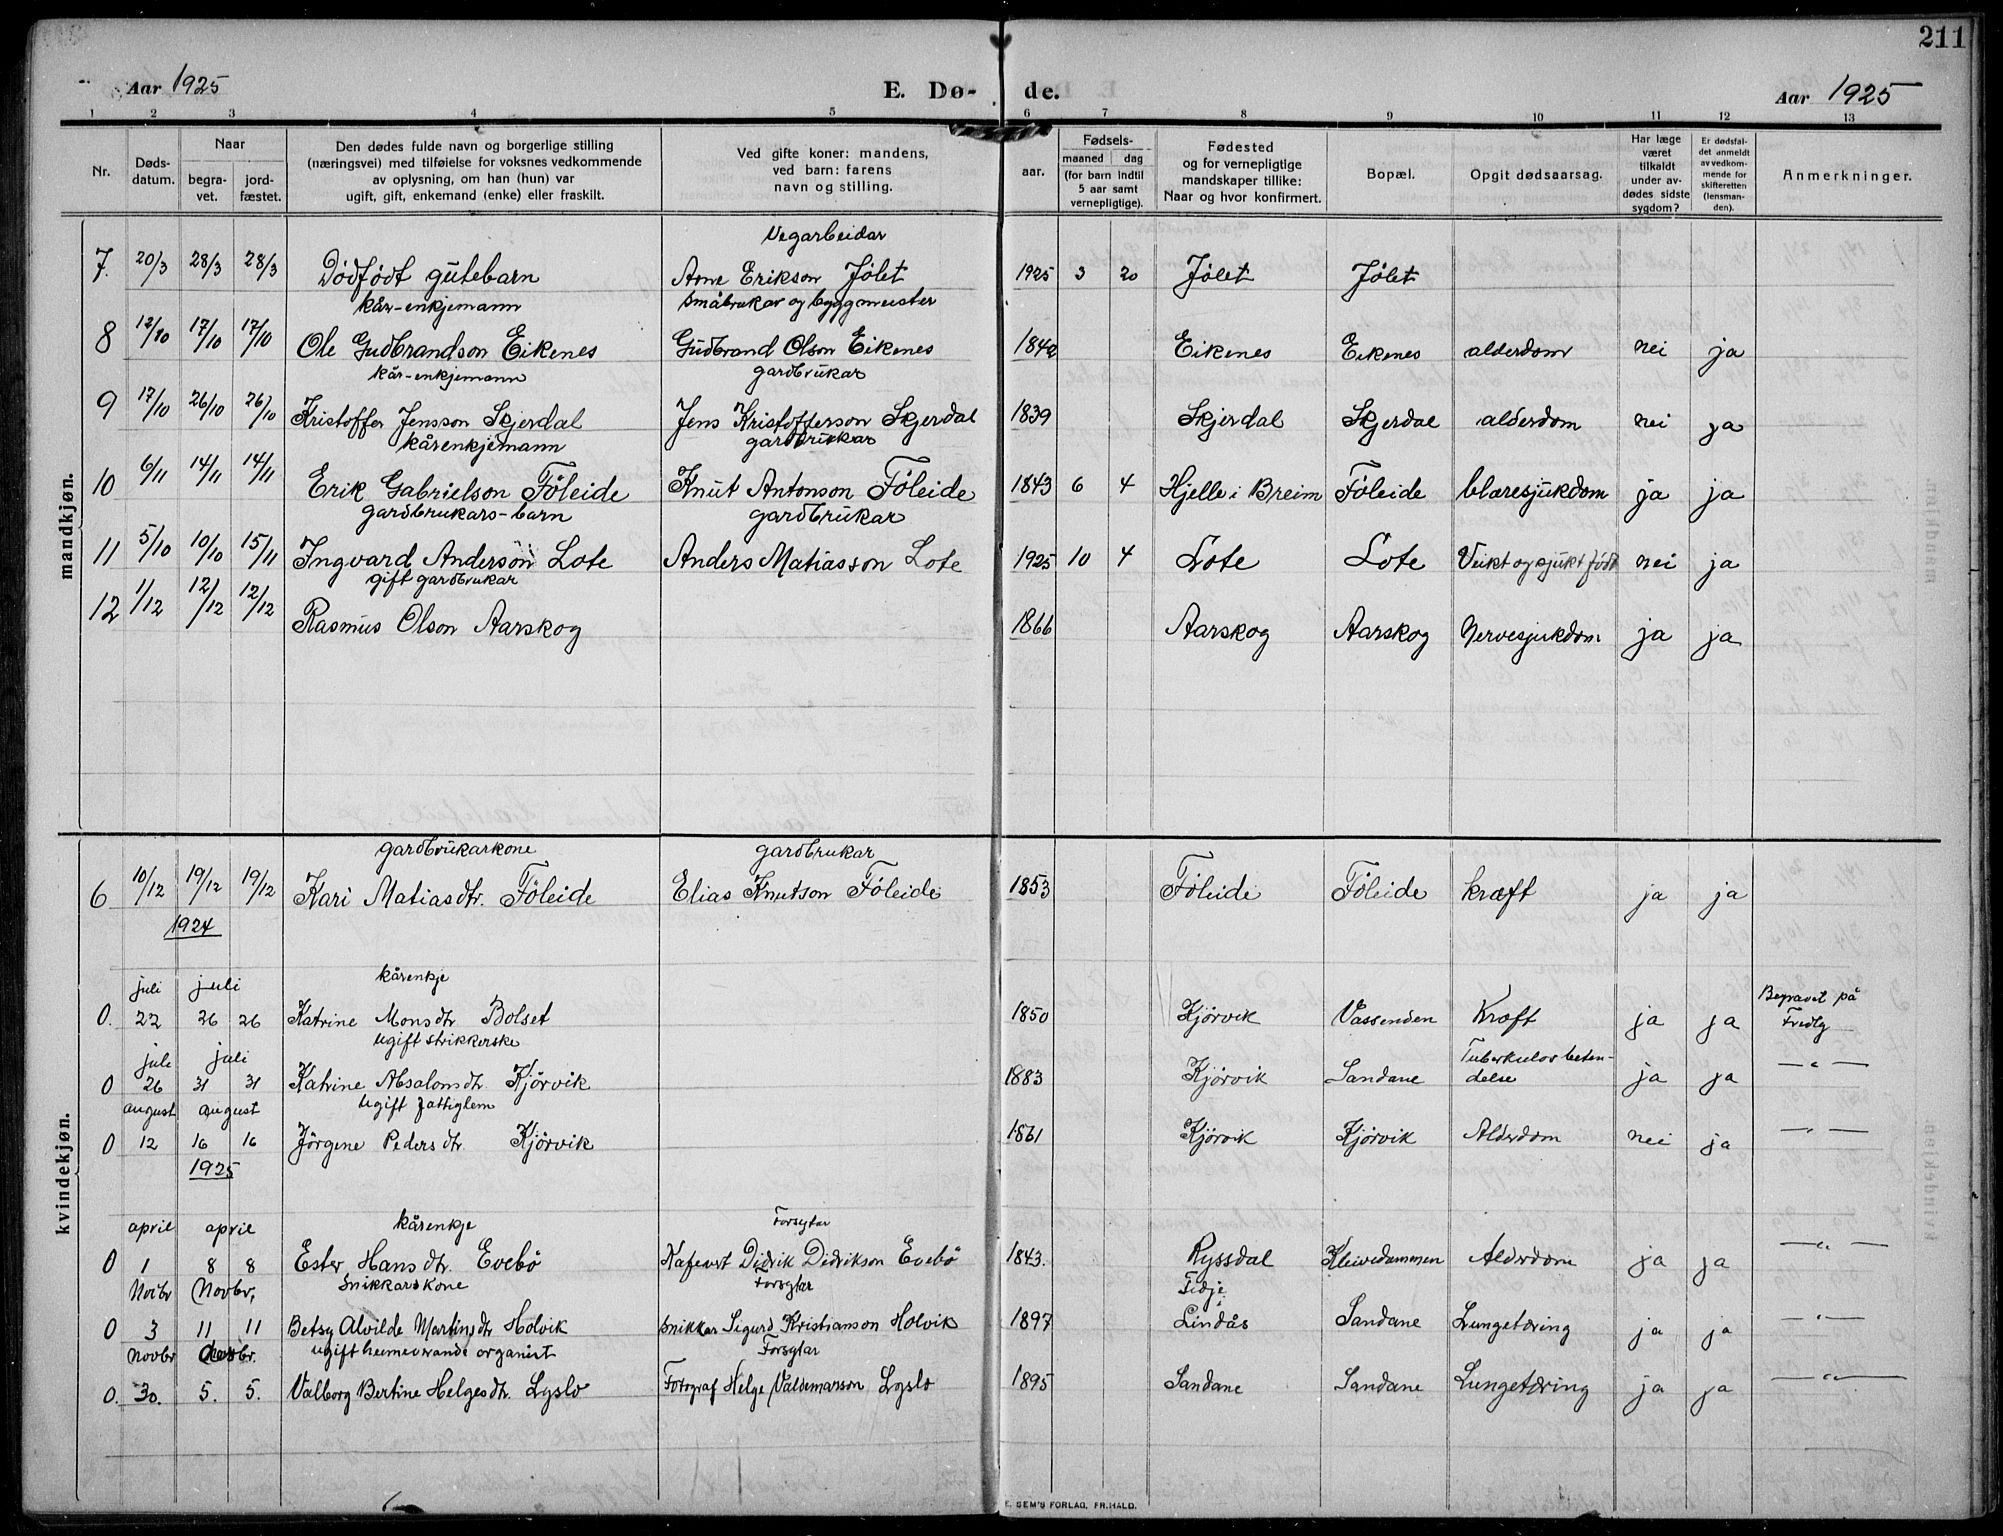 211
Aar 1925 E. Dø- de. Aar 1925
1 2 3 4 5 6 7 8 9 10 11 12 13
Nr.
Døds-
datum.
Naar
begra-
vet.
jord-
fæstet.
Den dødes fulde navn og borgerlige stilling
(næringsvei) med tilføielse for voksnes vedkommende
av oplysning, om han (hun) var
ugift, gift, enkemand (enke) eller fraskilt.
Ved gifte koner: mandens,
ved barn: farens
navn og stilling.
Fødsels-
aar.
maaned dag
(for barn indtil
5 aar samt
vernepligtige).
Fødested
og for vernepligtige
mandskaper tillike:
Naar og hvor konfirmert.
Bopæl.
Opgit dødsaarsag.
Har læge
været
tilkaldt
under av-
dødes sidste
sygdom?
Er dødsfal-
det anmeldt
av vedkom-
mende for
skifteretten
(lensman-
den).
Anmerkninger.
mandkjøn.
Vegarbeidar
7. 20/3 28/3 28/3 Dødfødt gutebarn Arne Erikson Jølet 1925 3 20 Jølet Jølet
kår-enkjemann småbrukar og byggmeister
8 12/10 17/10 17/10 Ole Gudbrandson Eikenes Gudbrand Olson Eikenes 1842 Eikenes Eikenes alderdom nei ja
kår-enkjemann gardbrukar
9 17/10 26/10 26/10 Kristoffer Jensson Skjerdal Jens Kristofferson Skjerdal 1839 Skjerdal Skjerdal alderdom nei ja
kårenkjemann gardbrukar
10 6/11 14/11 14/11 Erik Gabrielson Föleide Knut Antonson Föleide 1843 6 4 Hjelle i Breim Föleide blæresjukdom ja ja
gardbrukars-barn gardbrukar
11 5/10 10/10 15/11 Ingvard Anderson Lote Anders Matiasson Lote 1925 10 4 Lote Lote Veikt og sjukt född nei ja
gift gardbrukar
12 1/12 12/12 12/12 Rasmus Olson Aarskog 1866 Aarskog Aarskog Nervesjukdom ja ja
kvindekjøn.
gardbrukarkone gardbrukar
6 10/12 19/12 19/12 Kari Matiasdtr. Föleide Elias Knutson Föleide 1853 Föleide Föleide kræft ja ja
1924
juli juli kårenkje
0. 22 26 26 Katrine Monsdtr Bolset 1850 Kjörvik Vassenden Kræft ja ja Begravet på Fredly
juli juli ugift strikkerske
0 26 31 31 Katrine Absalonsdtr. Kjörvik 1883 Kjörvik Sandane Tuberkulös beten-
delse ja ja — " —
august august ugift fattiglem
0 12 16 16 Jörgene Pedersdtr. Kjörvik 1861 Kjörvik Kjörvik Alderdom nei ja — " —
1925
april april kårenkje Forsytar
0 1 8 8 Ester Hansdtr. Evebö Didrik Didrikson Evebö 1843. Ryssdal Kleivedammen Alderdom ja ja — " —
Novbr Novbr. Snikkarskone Forsytar
0 3 11 11 Betsy Alvilde Martinsdtr Holvik Snikkar Sigurd Kristianson Holvik 1897 Lindås Sandane Lungetæring ja ja — " —
Novbr desbr. ugift heimeverande organist Forsytar
0. 30. 5. 5. Valborg Bertine Helgesdtr. Lyslo Fotograf Helge Valdemarson Lyslo 1895 Sandane Sandane Lungetæring ja ja — " —
SEM'S FORLAG, FR.HALD.